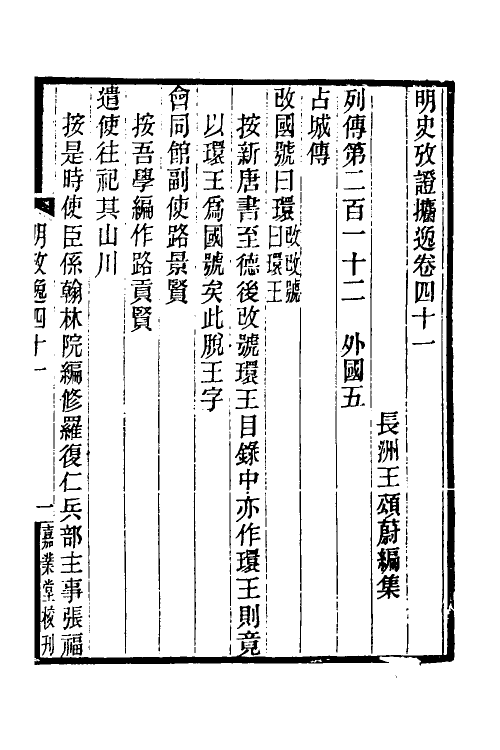 明史攷證攟逸卷四十一
長洲王頌蔚編集
列傳第二百一十二　外國五
占城傳
改國號曰環改改號曰環王
按新唐書至德後改號環王目錄中亦作環王則竟
以環王爲國號矣此脫王字
會同館副使路景賢
按吾學編作路貢賢
遣使往祀其山川
按是時使臣係翰林院編修羅復仁兵部主事張福
明攷逸四十一
一
嘉業堂校刊